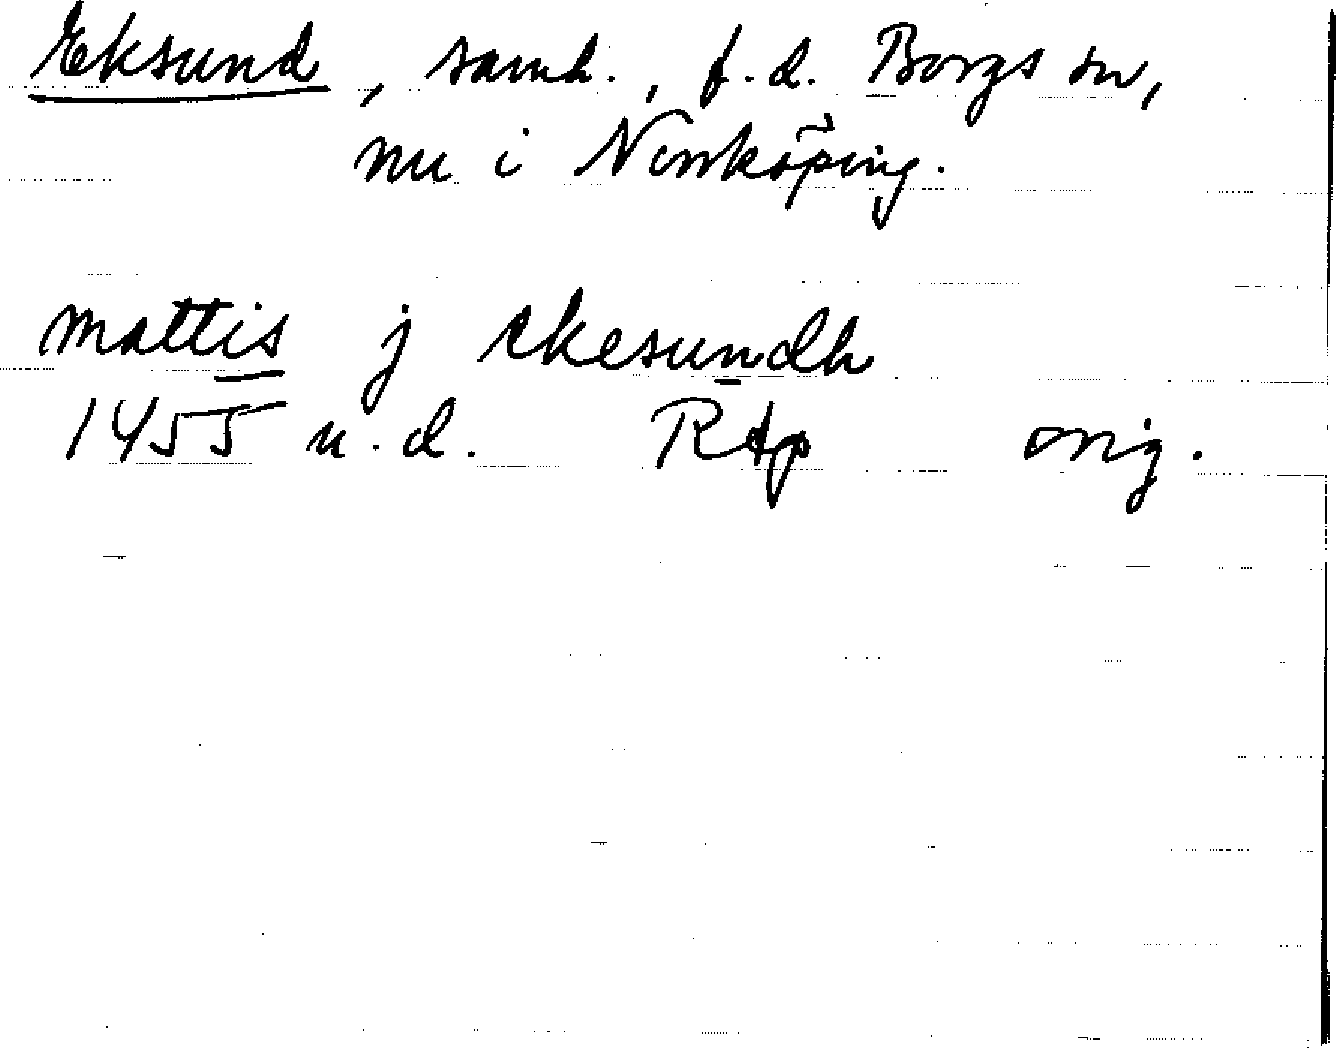 Eksund, samh., f.d. Borgs sn,
nu i Norrköping.
mattis j ekesundh
1455 u.d. RAp orig.